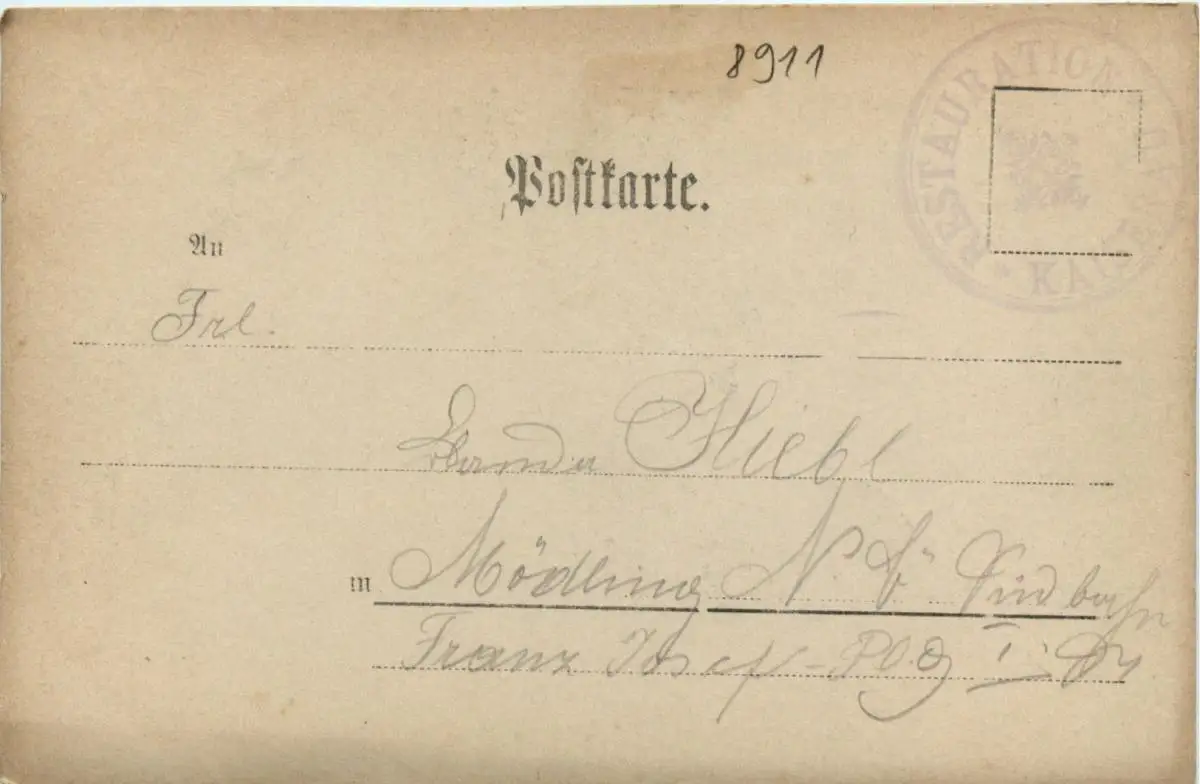 8911
RESTAURATION
Postkarte.
An
Frl.
Wanda Hiebl
in Mödling N. Ö. Südbahn
Franz Josef-Platz I.